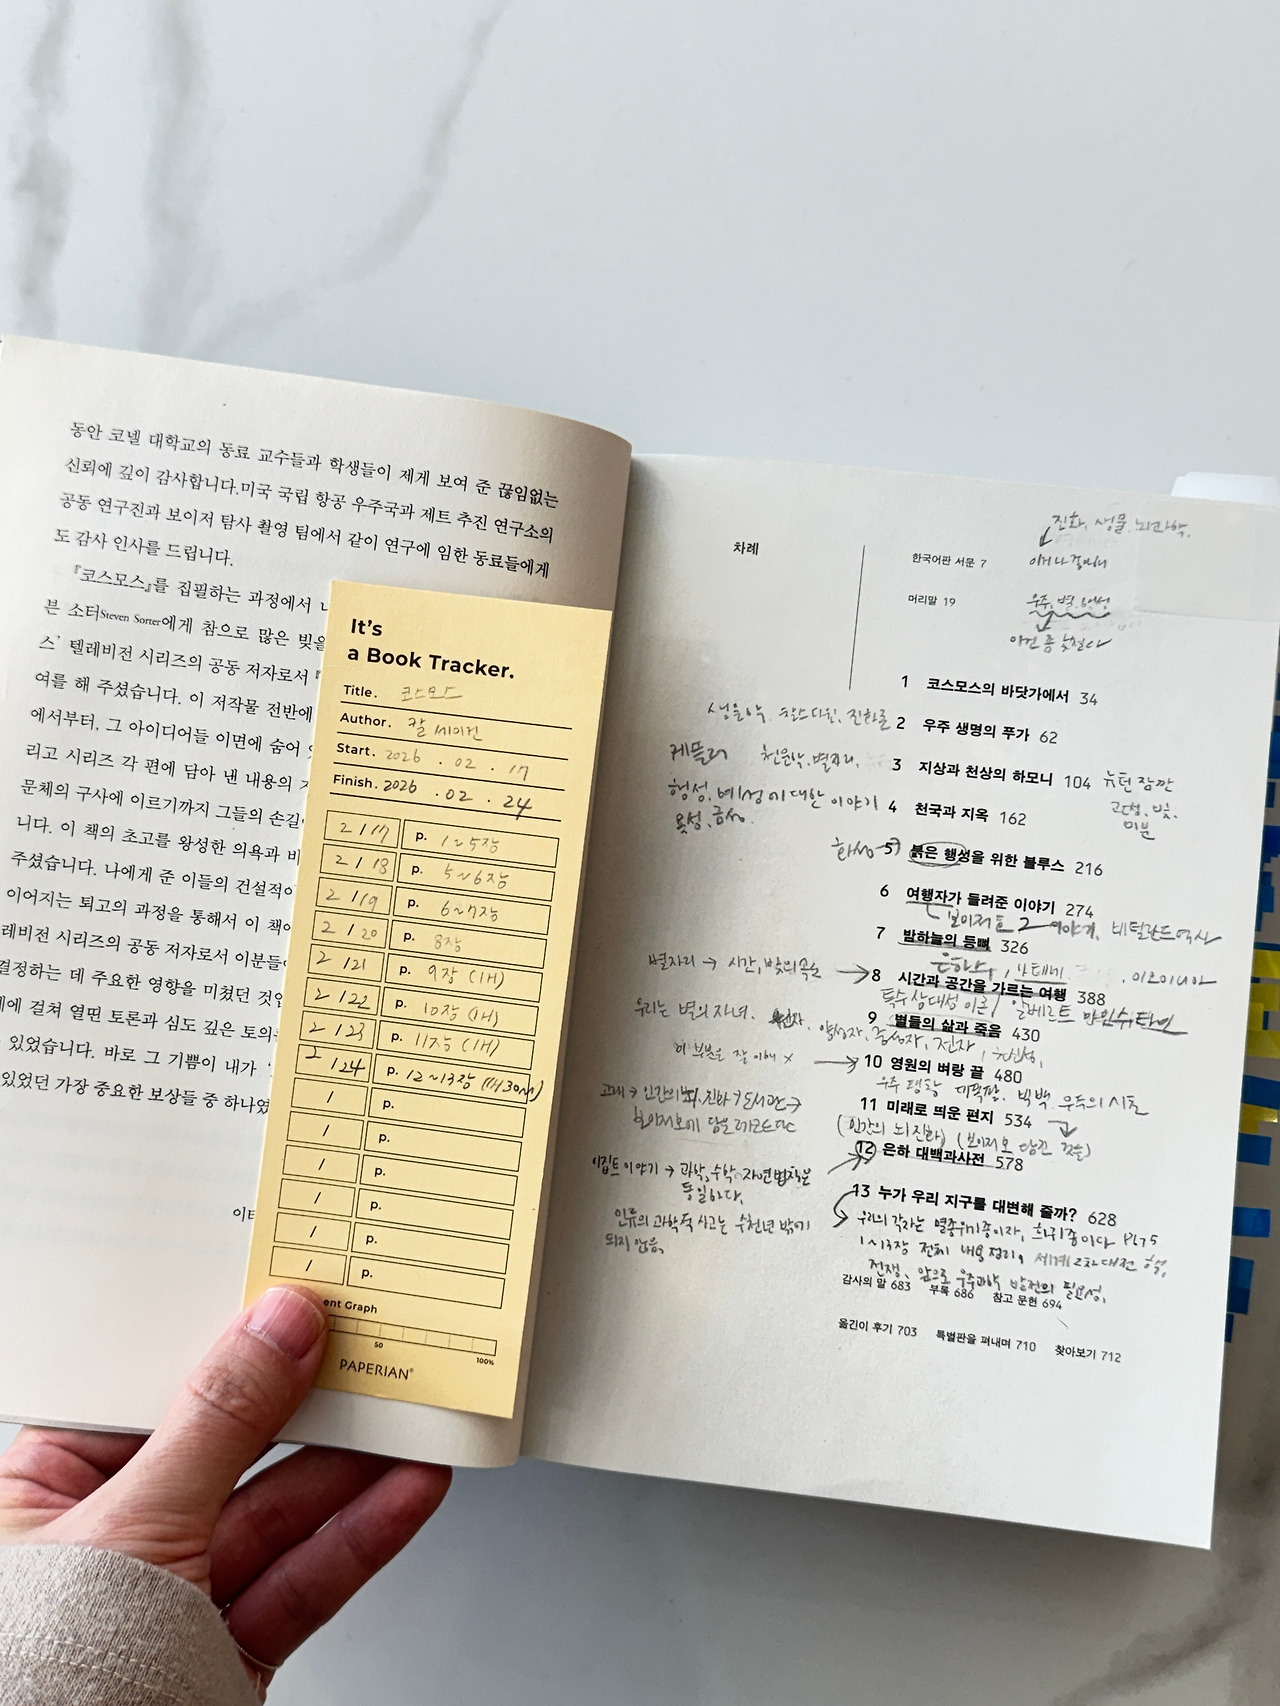 동안 코넬 대학교의 동료 교수들과 학생들이 제게 보여 준 끊임없는
신뢰에 깊이 감사합니다.미국 국립 항공 우주국과 제트 추진 연구소의
공동 연구진과 보이저 탐사 촬영 팀에서 같이 연구에 임한 동료들에게
도 감사 인사를 드립니다.
『코스모스』를 집필하는 과정에서
븐 소터Steven Sorter에게 참으로 많은 빚을
스’ 텔레비전 시리즈의 공동 저자로서
여를 해 주셨습니다. 이 저작물 전반에
에서부터, 그 아이디어들 이면에 숨어
리고 시리즈 각 편에 담아 낸 내용의
문체의 구사에 이르기까지 그들의 손길이
니다. 이 책의 초고를 왕성한 의욕과
주셨습니다. 나에게 준 이들의 건설적
이어지는 퇴고의 과정을 통해서 이 책
레비전 시리즈의 공동 저자로서 이분들
결정하는 데 주요한 영향을 미쳤던 것
에 걸쳐 열띤 토론과 심도 깊은 토의
있었습니다. 바로 그 기쁨이 내가
있었던 가장 중요한 보상들 중 하나였
It’s
a Book Tracker.
Title. 코스모스
Author. 칼 세이건
Start. 2026 . 02 . 17
Finish. 2026 . 02 . 24
2 / 17 p. 1~5장
2 / 18 p. 5~6장
2 / 19 p. 6~7장
2 / 20 p. 8장
2 / 21 p. 9장 (1H)
2 / 22 p. 10장 (1H)
2 / 23 p. 11장 (1H)
2 / 24 p. 12~13장 (1H30m)
/ p.
/ p.
/ p.
/ p.
/ p.
/ p.
ent Graph
50 100%
PAPERIAN®
차례
진화, 생물, 뇌과학,
한국어판 서문 7
머리말 19
우주, 별, 행성
1 코스모스의 바닷가에서 34
생물학, 찰스다윈, 진화론 2 우주 생명의 푸가 62
케플러 천문학, 별자리, 3 지상과 천상의 하모니 104 뉴턴 잠깐
관성, 빛,
미분
행성, 혜성에 대한 이야기 4 천국과 지옥 162
목성, 금성.
화성 5 붉은 행성을 위한 블루스 216
6 여행자가 들려준 이야기 274
보이저호 2 이야기, 네덜란드 역사
7 밤하늘의 등뼈 326
은하수, 이오니아
별자리 → 시간, 빛의 속도 → 8 시간과 공간을 가르는 여행 388
특수 상대성 이론 / 알베르트 아인슈타인
우리는 별의 자녀. 9 별들의 삶과 죽음 430
양성자, 중성자, 전자, 초신성,
이 부분은 잘 이해 x → 10 영원의 벼랑 끝 480
우주 팽창 대폭발, 빅뱅, 우주의 시초
고래 → 인간의 뇌, 진화 → 도서관 → 11 미래로 띄운 편지 534
보이저호에 담은 레코드판
(인간의 뇌 진화) (보이저호 담긴 것들)
12 은하 대백과사전 578
이집트 이야기 → 과학, 수학 자연법칙은
동일하다.
13 누가 우리 지구를 대변해 줄까? 628
인류의 과학적 사고는 수천년 밖에
되지 않음.
우리의 각자는 멸종위기종이자, 희귀종이다 P675
1~13장 전체 내용 정리, 세계2차대전 핵,
전쟁, 앞으로 우주과학 발전의 필요성,
감사의 말 683 부록 686 참고 문헌 694
옮긴이 후기 703 특별판을 펴내며 710 찾아보기 712